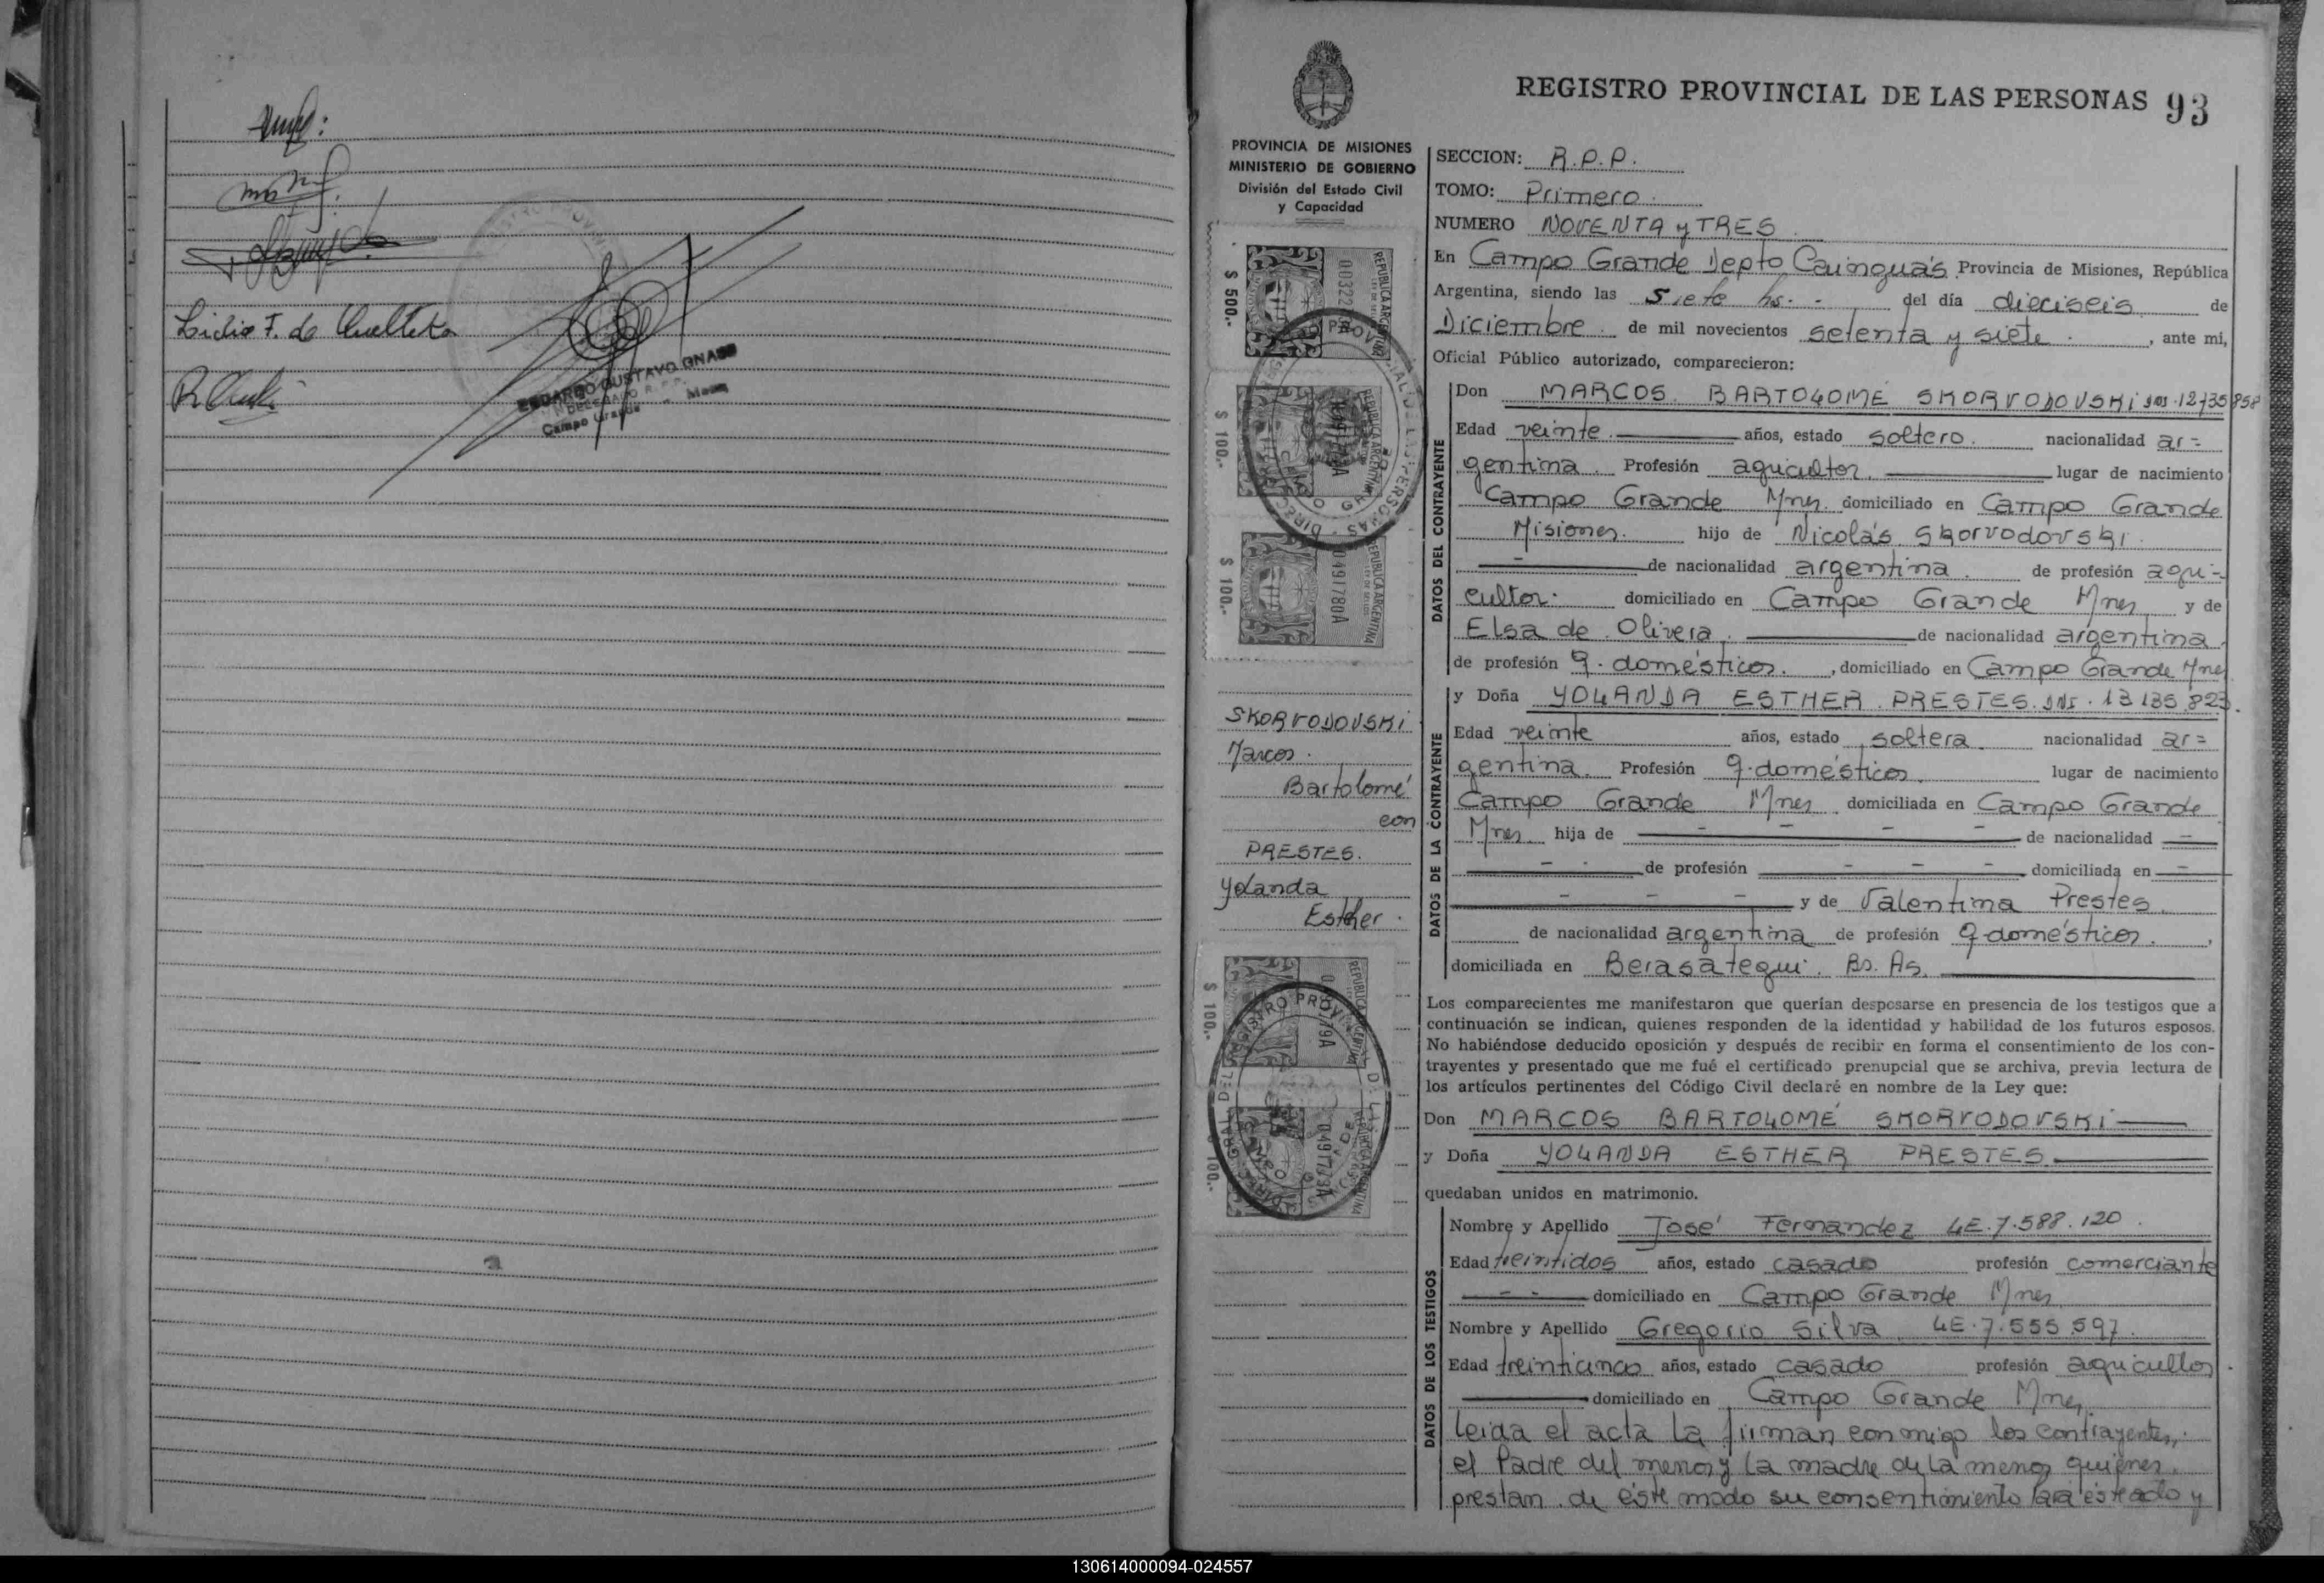 Lidio F. de
EDUARDO GUSTAVO GNASS
DELEGADO R.P.P.
Campo Grande - Mnes
REGISTRO PROVINCIAL DE LAS PERSONAS 93
PROVINCIA DE MISIONES
MINISTERIO DE GOBIERNO
División del Estado Civil
y Capacidad
$ 500.-
REPUBLICA ARGENTINA
$ 100.-
REPUBLICA ARGENTINA
$ 100.-
0491780A
REPUBLICA ARGENTINA
SKORVODOVSKI
Marcos.
Bartolomé
con
PRESTES.
Yolanda
Esther.
$ 100.-
$ 100.-
SECCION: R.P.P.
TOMO: Primero.
NUMERO NOVENTA y TRES.
En Campo Grande Depto Cainguás Provincia de Misiones, República
Argentina, siendo las siete hs. - del día dieciseis de
Diciembre. de mil novecientos setenta y siete. , ante mi,
Oficial Público autorizado, comparecieron:
DATOS DEL CONTRAYENTE
Don MARCOS BARTOLOMÉ SKORVODOVSKI DNI. 12735858
Edad veinte. años, estado soltero. nacionalidad ar=
gentina. Profesión agricultor. lugar de nacimiento
Campo Grande Mnes. domiciliado en Campo Grande
Misiones. hijo de Nicolás Skorvodovski.
- de nacionalidad argentina. de profesión agri-
cultor. domiciliado en Campo Grande Mnes y de
Elsa de Olivera. de nacionalidad argentina.
de profesión q. domésticos. , domiciliado en Campo Grande Mnes
DATOS DE LA CONTRAYENTE
y Doña YOLANDA ESTHER PRESTES. DNI. 13135.823.
Edad veinte años, estado soltera. nacionalidad ar=
gentina. Profesión q. domésticos. lugar de nacimiento
Campo Grande Mnes. domiciliada en Campo Grande
Mnes. hija de - - - - de nacionalidad -
- - de profesión - - - domiciliada en -
- - - y de Valentina Prestes
de nacionalidad argentina de profesión q. domésticos. ,
domiciliada en Berasategui. Bs. As.
Los comparecientes me manifestaron que querían desposarse en presencia de los testigos que a
continuación se indican, quienes responden de la identidad y habilidad de los futuros esposos.
No habiéndose deducido oposición y después de recibir en forma el consentimiento de los con-
trayentes y presentado que me fué el certificado prenupcial que se archiva, previa lectura de
los artículos pertinentes del Código Civil declaré en nombre de la Ley que:
Don MARCOS BARTOLOMÉ SKORVODOVSKI
y Doña YOLANDA ESTHER PRESTES.
quedaban unidos en matrimonio.
DATOS DE LOS TESTIGOS
Nombre y Apellido José Fernandez LE. 7.588.120.
Edad treintidos años, estado casado profesión comerciante
- - domiciliado en Campo Grande Mnes
Nombre y Apellido Gregorio Silva LE. 7.555.597.
Edad treinticinco años, estado casado profesión agricultor.
domiciliado en Campo Grande Mnes.
Leida el acta la firman conmigo los contrayentes,
el Padre del menor y la madre de la menor quienes
prestan de éste modo su consentimiento para éste acto y
130614000094-024557